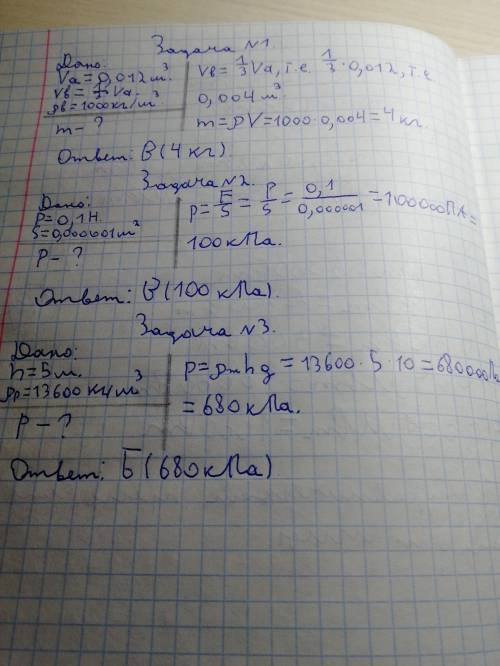 Задача №1.
Дано:
Va = 0,012 м³
Vв = 1/3 Va.
ρв = 1000 кг/м³
m - ?
Vв = 1/3 Va, т.е. 1/3 · 0,012, т.е
0,004 м³
m = ρV = 1000 · 0,004 = 4 кг.
Ответ: В (4 кг).
Задача №2.
Дано:
P = 0,1 Н.
S = 0,000001 м²
P - ?
p = F/S = P/S = 0,1/0,000001 = 100000 ПА =
100 кПа.
Ответ: В (100 кПа).
Задача №3.
Дано:
h = 5 м.
ρр = 13600 кг/м³
P - ?
p = ρжhg = 13600 · 5 · 10 = 680000 Па
= 680 кПа.
Ответ: Б (680 кПа)